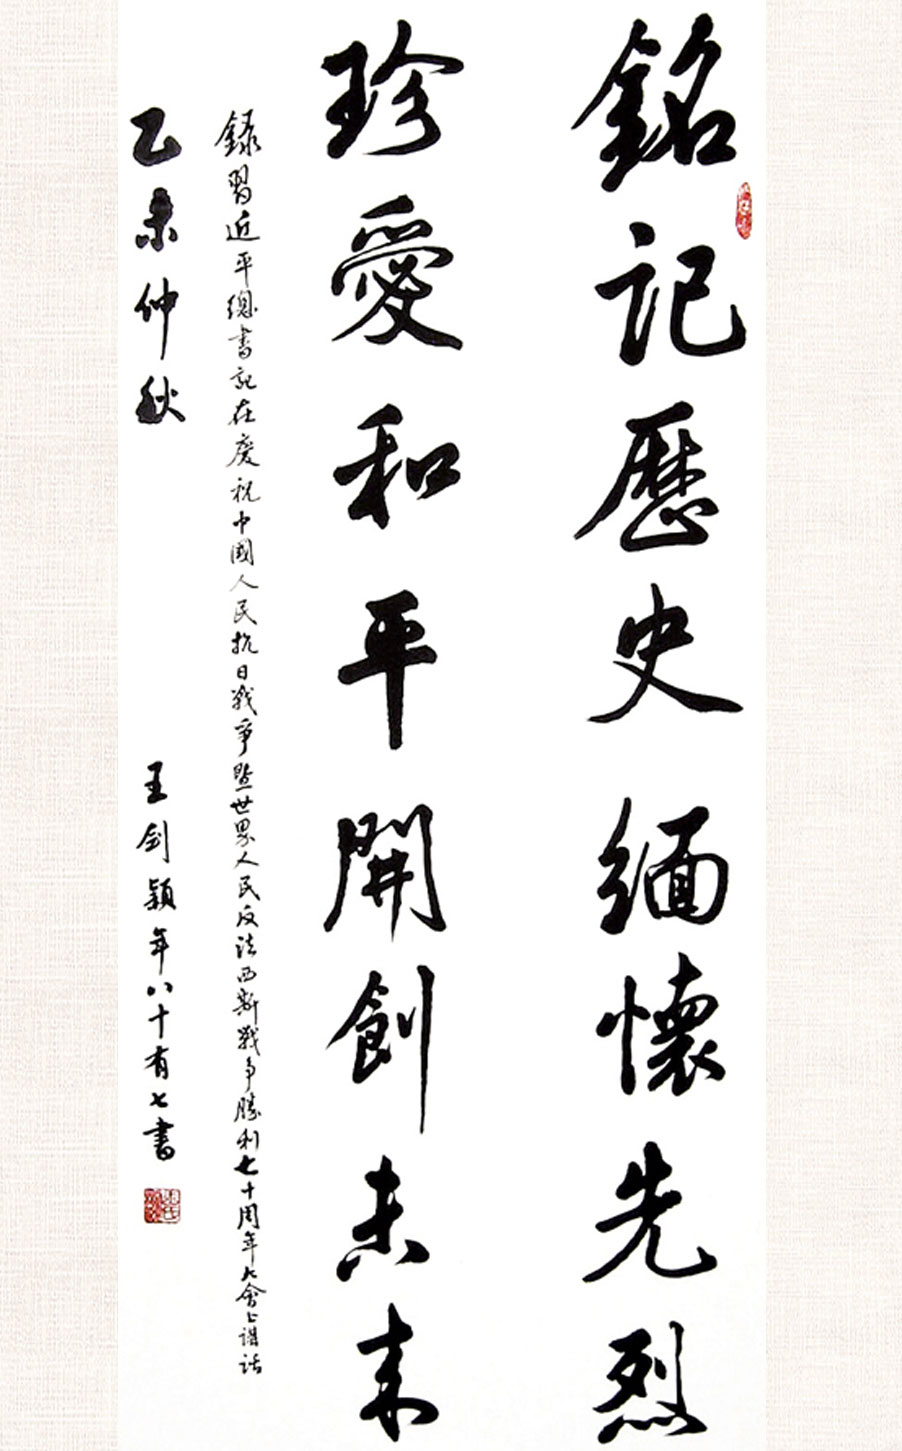 銘記歷史緬懷先烈
珍愛和平開創未来
録習近平總書記在慶祝中國人民抗日战爭暨世界人民反法西斯戰争勝利七十周年大會上講話
乙未仲秋
王剑颖年八十有七書